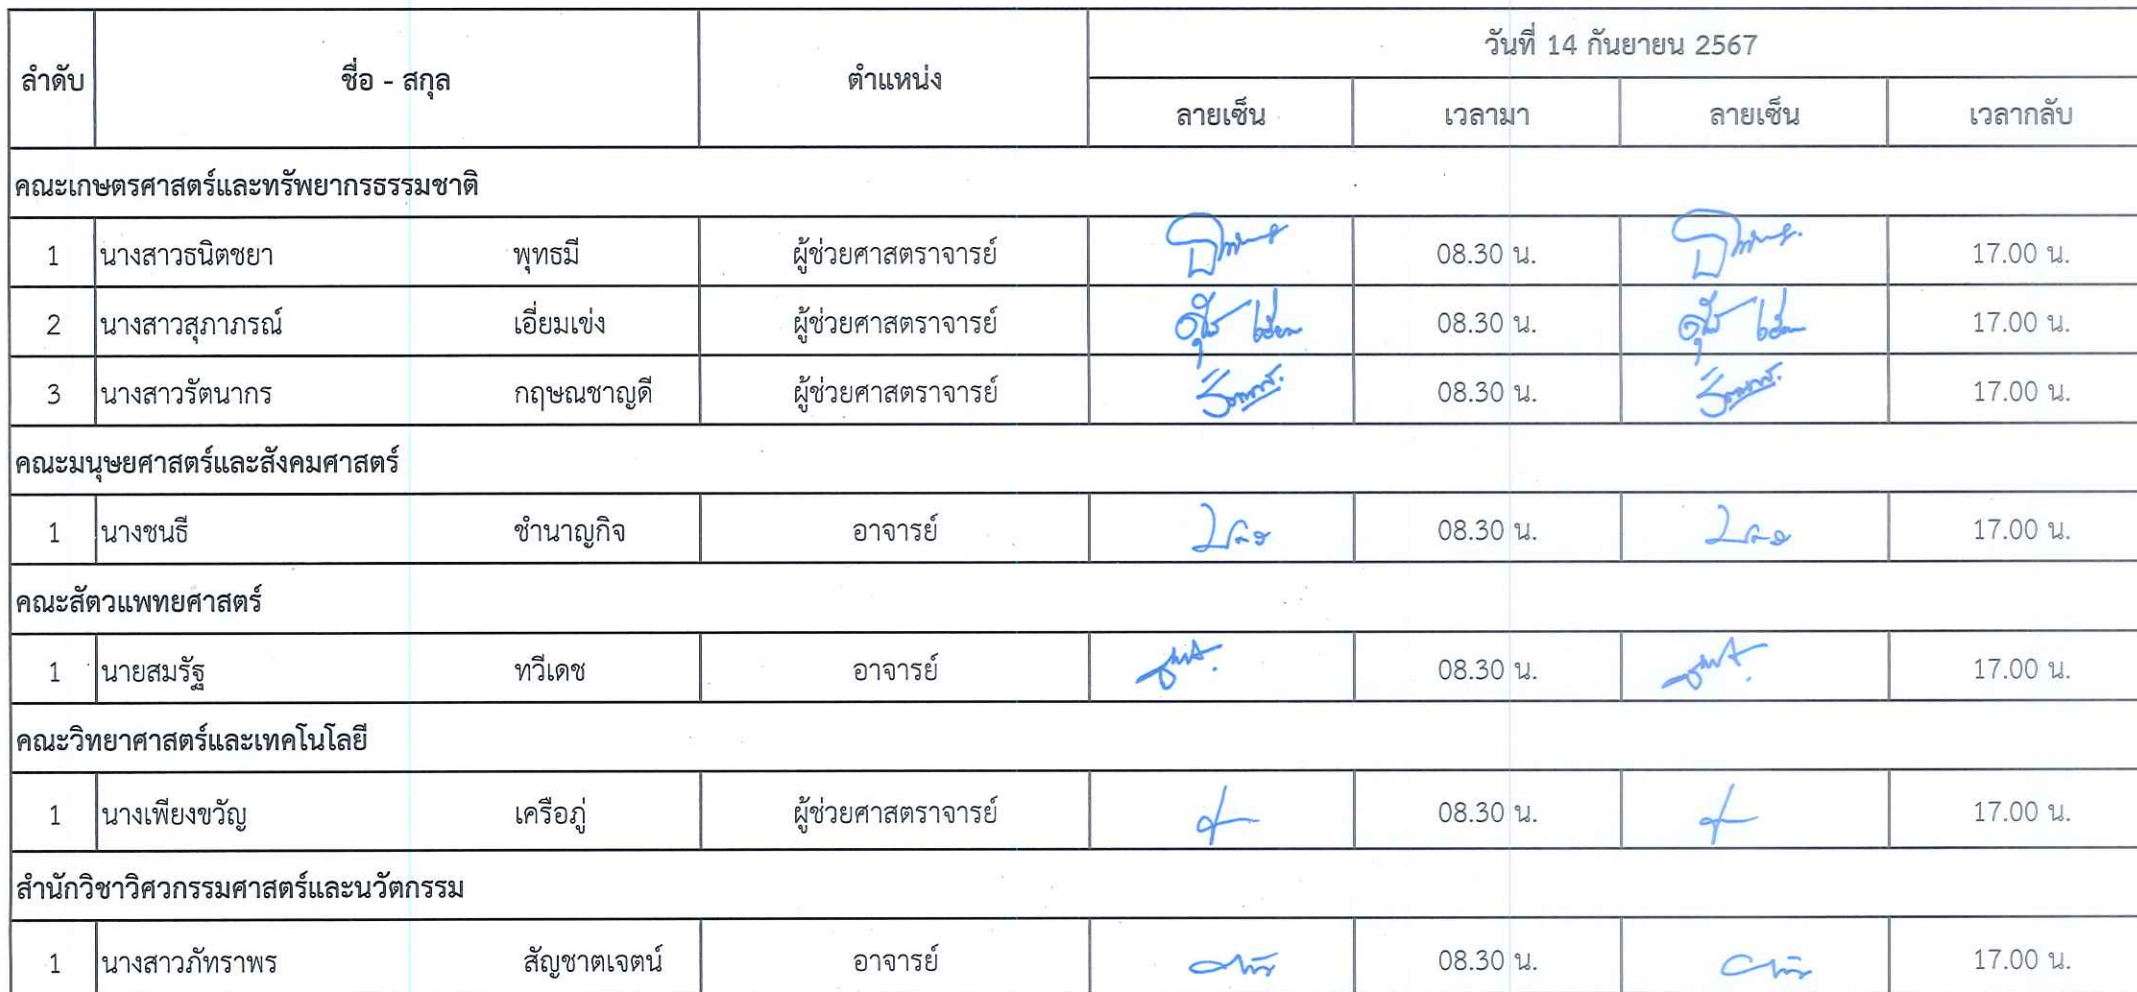 ลำดับ ชื่อ - สกุล ตำแหน่ง วันที่ 14 กันยายน 2567
ลายเซ็น เวลามา ลายเซ็น เวลากลับ
คณะเกษตรศาสตร์และทรัพยากรธรรมชาติ
1 นางสาวธนิตชยา พุทธมี ผู้ช่วยศาสตราจารย์ 08.30 น. 17.00 น.
2 นางสาวสุภาภรณ์ เอี่ยมเข่ง ผู้ช่วยศาสตราจารย์ 08.30 น. 17.00 น.
3 นางสาวรัตนากร กฤษณชาญดี ผู้ช่วยศาสตราจารย์ 08.30 น. 17.00 น.
คณะมนุษยศาสตร์และสังคมศาสตร์
1 นางชนธี ชำนาญกิจ อาจารย์ 08.30 น. 17.00 น.
คณะสัตวแพทยศาสตร์
1 นายสมรัฐ ทวีเดช อาจารย์ 08.30 น. 17.00 น.
คณะวิทยาศาสตร์และเทคโนโลยี
1 นางเพียงขวัญ เครือภู่ ผู้ช่วยศาสตราจารย์ 08.30 น. 17.00 น.
สำนักวิชาวิศวกรรมศาสตร์และนวัตกรรม
1 นางสาวภัทราพร สัญชาตเจตน์ อาจารย์ 08.30 น. 17.00 น.